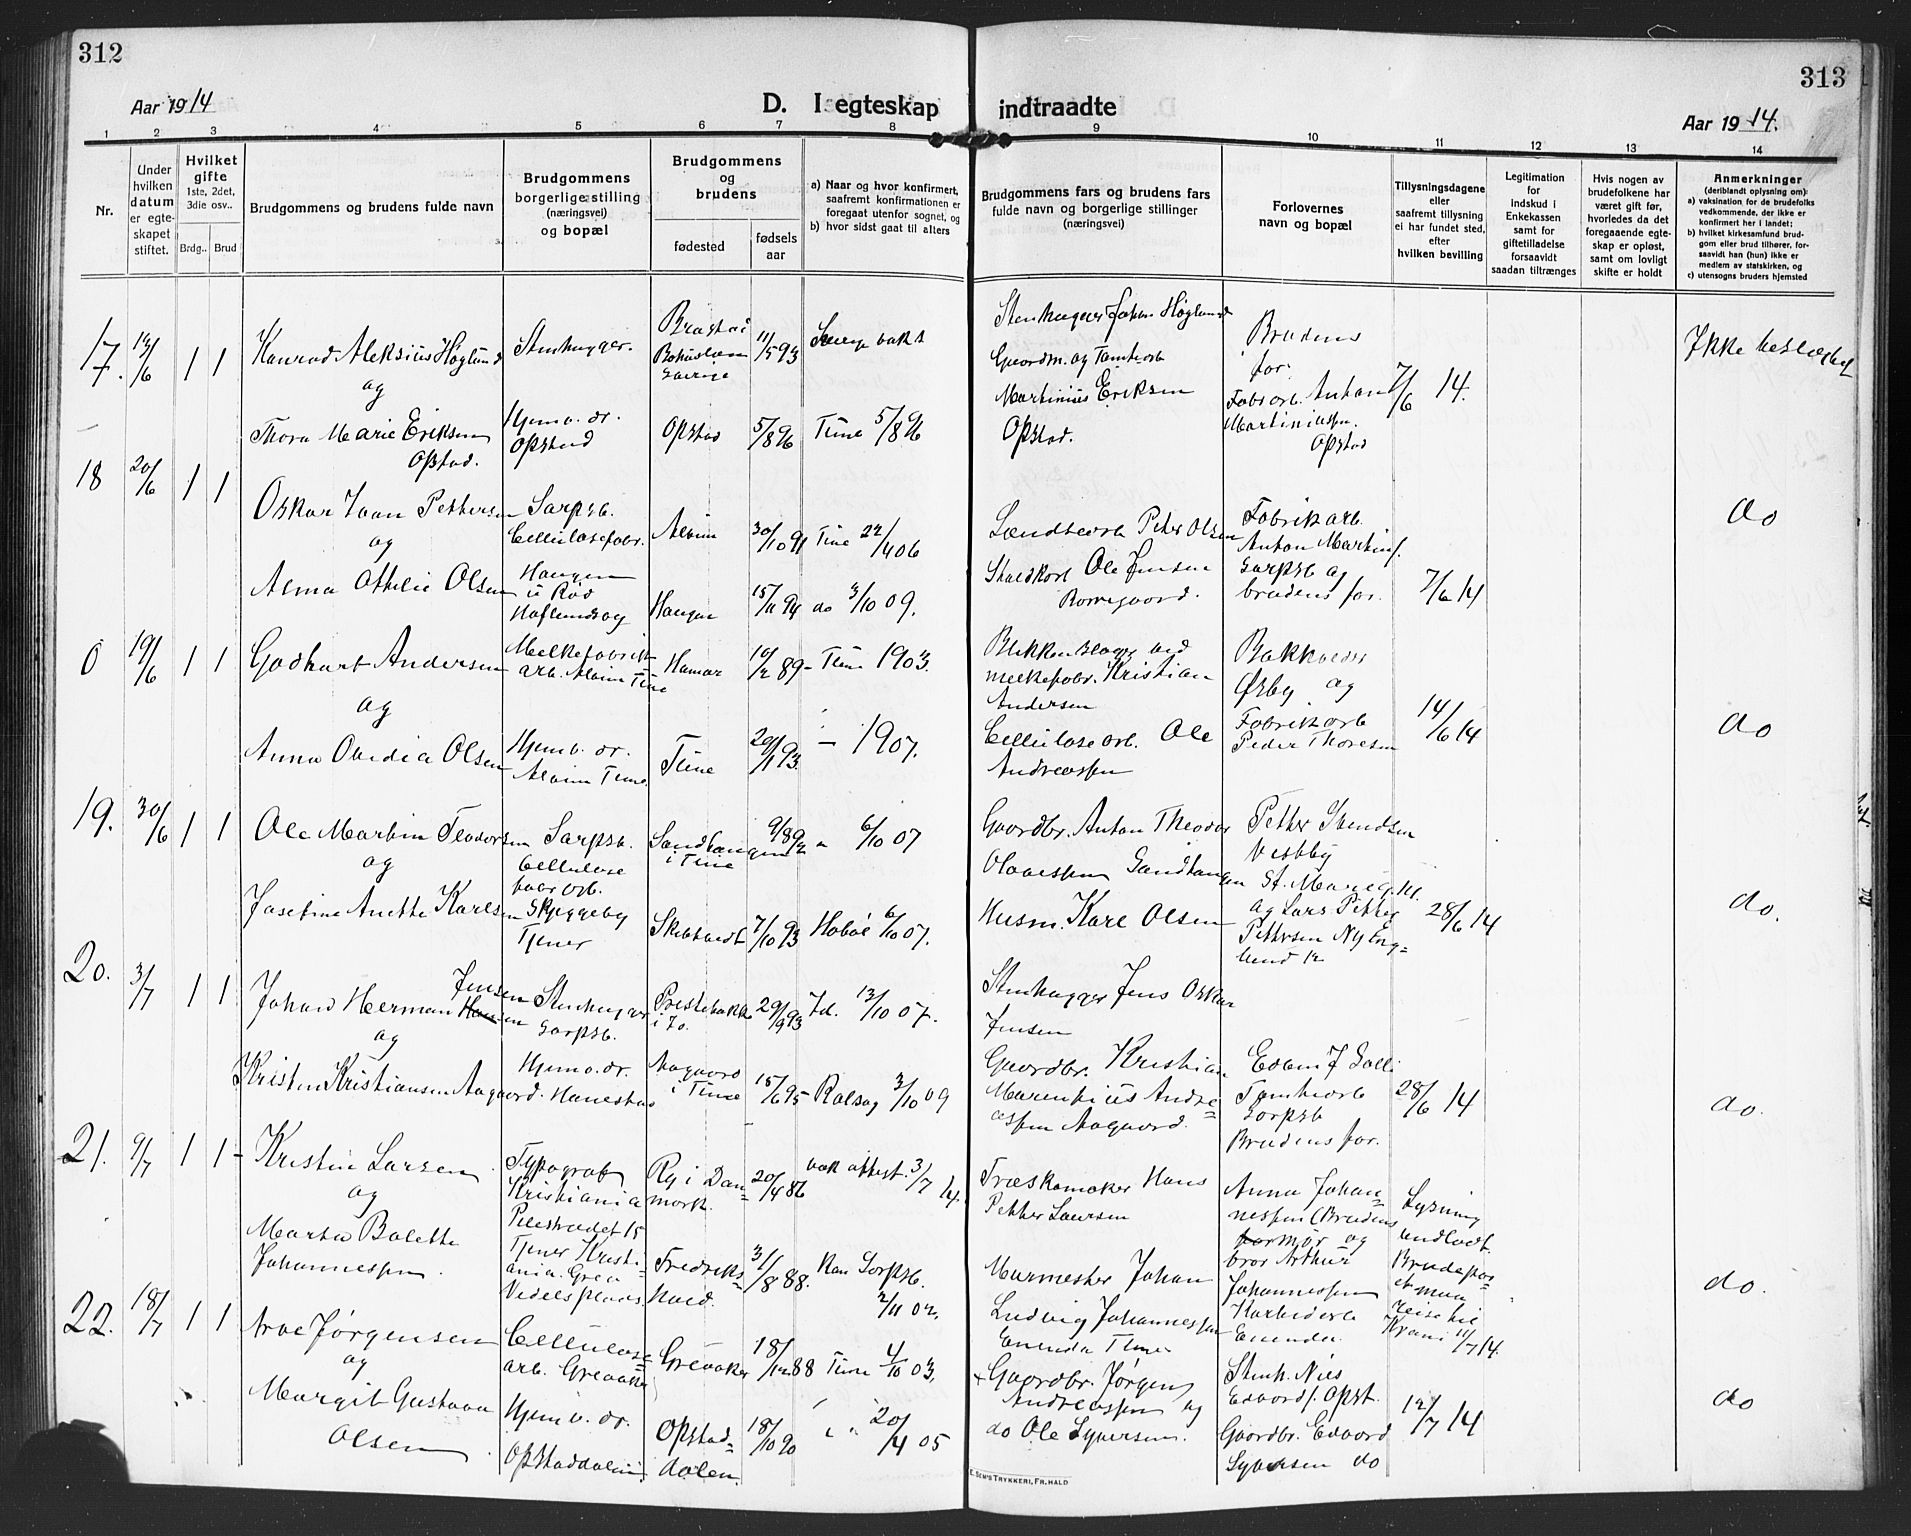 312
313
Aar 1914
D. I egteskap indtraadte
Aar 1914.
1 2 3 4 5 6 7 8 9 10 11 12 13 14
Nr.
Under hvilken datum er egteskapet stiftet.
Hvilket gifte
1ste, 2det, 3die osv..
Brdg.. Brud
Brudgommens og brudens fulde navn
Brudgommens borgerlige stilling (næringsvei) og bopæl
Brudgommens og brudens
fødested
fødselsaar
a) Naar og hvor konfirmert, saafremt konfirmationen er foregaat utenfor sognet, og
b) hvor sidst gaat til alters
Brudgommens fars og brudens fars fulde navn og borgerlige stillinger (næringsvei)
Forlovernes navn og bopæl
Tillysningsdagene eller saafremt tillysning ei har fundet sted, efter hvilken bevilling
Legitimation for indskud i Enkekassen samt for giftetilladelse forsaavidt saadan tiltrænges
Hvis nogen av brudefolkene har været gift før, hvorledes da det foregaaende egteskap er opløst, samt om lovligt skifte er holdt
Anmerkninger
(deriblandt oplysning om):
a) vaksination for de brudefolks vedkommende, der ikke er konfirmert her i landet;
b) hvilket kirkesamfund brudgom eller brud tilhører, forsaavidt han (hun) ikke er medlem av statskirken, og
c) utensogns bruders hjemsted
17. 14/6 1 1 Konrad Aleksius Høglund Stenhugger. 11/5 93
Stenhugger Johan Høglund
Brudens far
Ikke beslægtet
og
Thora Marie Eriksen Opstad. Hjemv. dr. Opstad Opstad 5/8 96 Tune 5/8 96
Gaardm. og Tomtearb Martinius Eriksen Opstad.
Fabr arb. Anton Martiniussen Opstad
7/6 14.
18 20/6 1 1 Oskar Ivan Pettersen Sarpsb. Cellulosefabr. Alvim 30/10 91 Tune 22/4 06
Peter Olsen
Fabrikarb. Anton Martins. Sarpsb og brudens far.
do
og
Alma Othilie Olsen Haugen u Rød Hafslundsøy Haugen 15/11 94 do 3/10 09.
Ole Jensen Borregaard.
7/6 14
0 19/6 1 1 Godhart Andersen Melkefabrikarb. Alvim Tune Hamar 10/2 89 - Tune 1903.
Blikkenslager ved melkefabr. Kristian Andersen
Ørby og
og
Anna Ovidia Olsen Hjemv. dr. Alvim Tune. Tune 20/1 93 - 1907.
Cellulosearb. Ole Andreassen
Fabrikarb Peder Thoresen
14/6 14
do
19. 30/6 1 1 Ole Martin Teodorsen Sarpsb. Cellulose fabr arb. Sandtangen i Tune 9/8 92 " 6/10 07
Gaardbr. Anton Theodor Olavessen Sandtangen
Petter Svendsen Vestby St. Mariegt.
og
Josefine Anette Karlsen Skjeggeby Tjener 7/10 93 Hobøl 6/10 07.
Husm. Karl Olsen
og Lars Petter Pettersen Ny Eng-
28/6 14
do.
20. 3/7 1 1 Johan Herman Jensen Stenhugger Sarpsb. Prestebakke i Id. 29/9 93 Id. 13/10 07.
Stenhugger Jens Oskar Jensen
og
Kristen Kristiansen Aagaard. Hjemv. dr. Hanestad Aagaard i Tune 15/6 95 - Rolsøy 3/10 09
Gaardbr. Kristian Marentius Andreassen Aagaard.
Tomtearb Sarpsb Brudens far.
28/6 14
do.
21. 9/7 1 1 - Kristin Larsen Typograf Kristiania Pilestrædet 15 Ry i Danmark. 20/4 86 vak attest. 3/7 14.
Træskomaker Hans Petter Laursen
Anna Johannessen (Brudens mor og bror Arthur Johannessen
Lysning
og
Marta Bolette Johannessen. Tjener Kristiania. Vedels plads. Fredrikshald. 31/8 88. Kon Sarpsb. 2/11 02.
Murmester Johan Ludvig Johannessen Enenda Tune
Karbidarb Enenda.
11/7 14.
do.
22. 18/7 1 1 Arve Jørgensen Cellulosearb. Greaaker Greaaker 18/12 88 Tune 4/10 03.
Gaardbr. Jørgen Andreassen og
Stenh. Nils Edvards. Opst.
og
Margit Gustava Olsen Hjemv. dr. Opstaddalen Opstaddalen 18/10 90 " " 20/4 05
do Ole Syversen.
Gaardbr. Edvard Syversen do
12/7 14
do
E. SEM'S TRYKKERI, FR.HALD